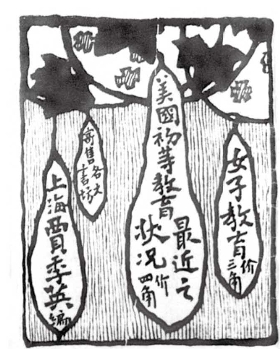 女子教育 價三角
美國初等教育最近之狀況 價四角
寄售各大書坊
上海賈季英編